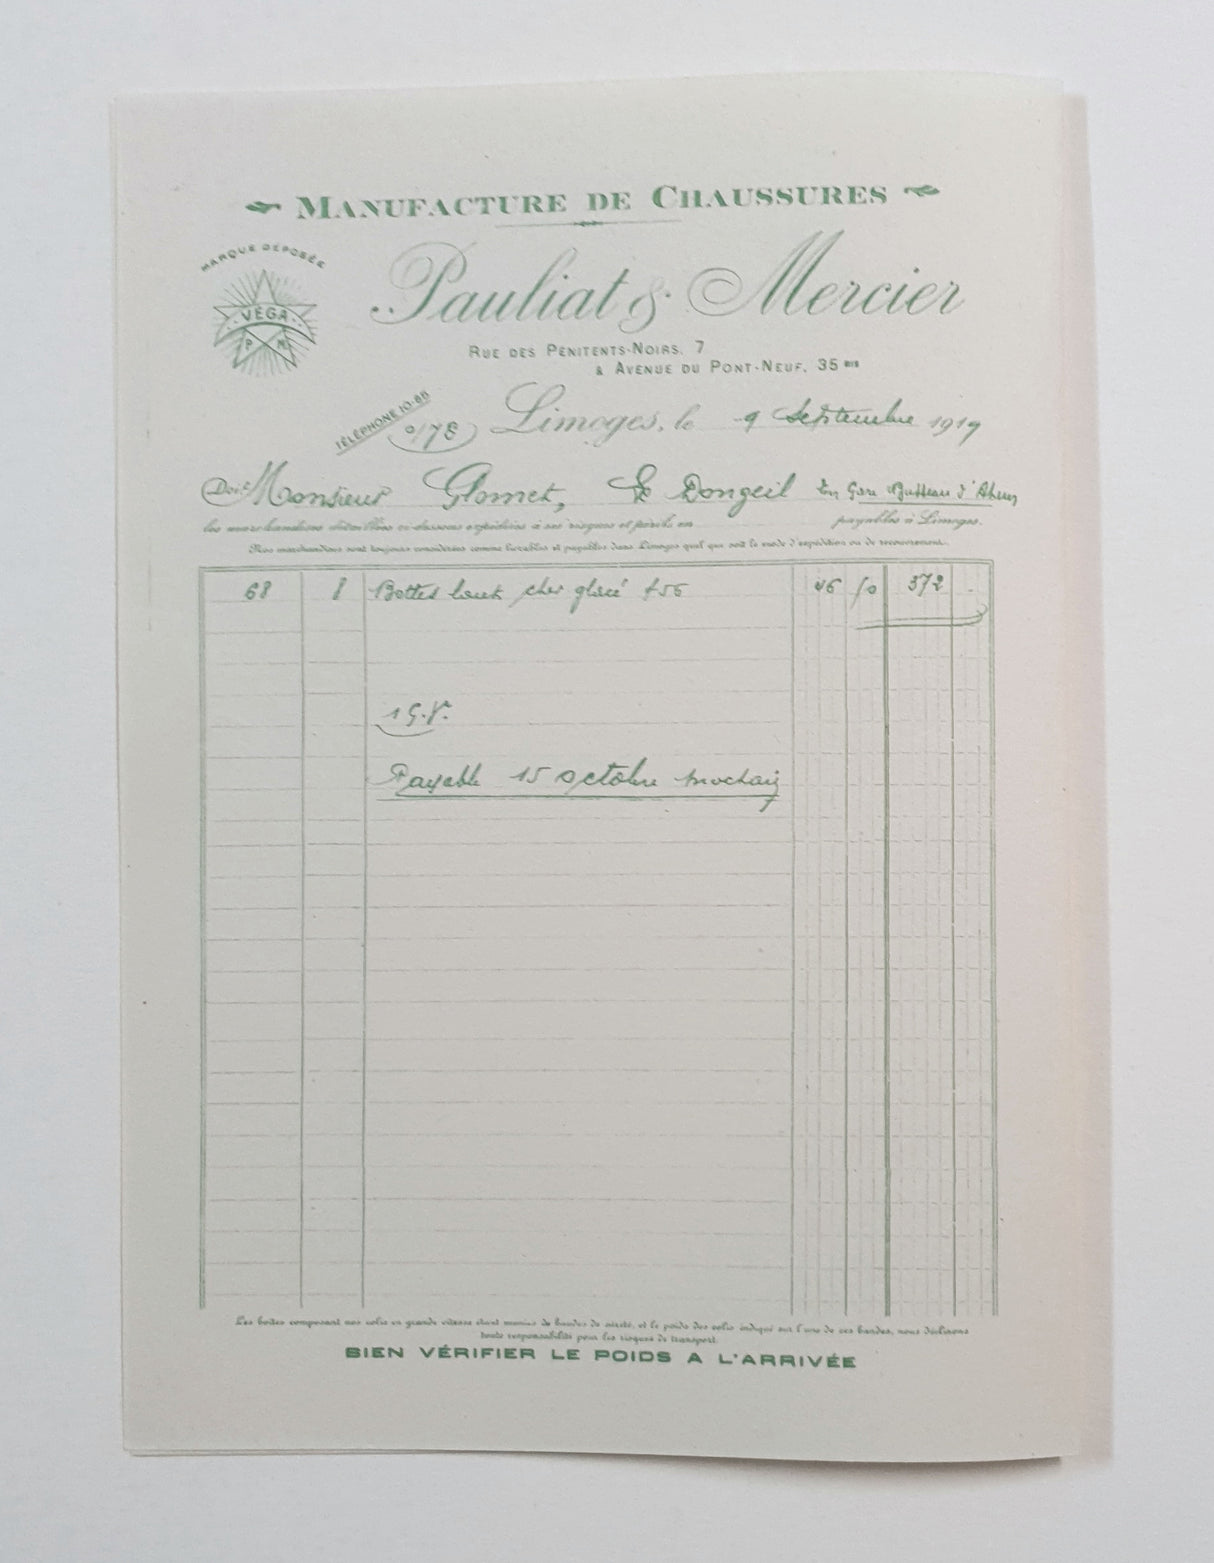 MANUFACTURE DE CHAUSSURES
MARQUE DÉPOSÉE
VÉGA
P M
Pauliat & Mercier
RUE DES PÉNITENTS-NOIRS, 7
& AVENUE DU PONT-NEUF, 35 BIS
TÉLÉPHONE 10-88
0/78
Limoges, le 9 Septembre 1919
Doit Monsieur Glomet, St Dongeil En Gare Busseau d'Ahun
les marchandises détaillées ci-dessous expédiées à ses risques et périls en payables à Limoges.
Nos marchandises sont toujours considérées comme livrables et payables dans Limoges quel que soit le mode d'expédition ou de recouvrement.
68 8 Bottes chev glacé 455 46 50 372
1 G.V.
Payable 15 octobre prochain
Les boîtes composant nos colis en grande vitesse étant munies de bandes de sûreté, et le poids des colis indiqué sur l'une de ces bandes, nous déclinons
toute responsabilité pour les risques de transport.
BIEN VÉRIFIER LE POIDS A L'ARRIVÉE